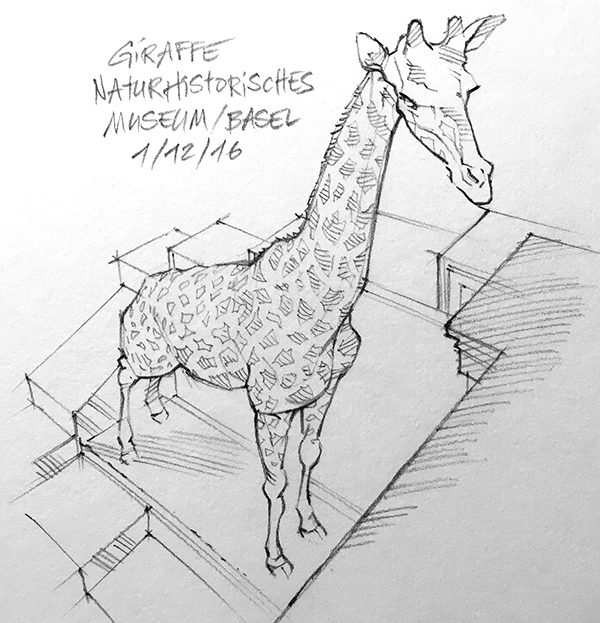 GIRAFFE
NATURHISTORISCHES
MUSEUM/BASEL
1/12/16